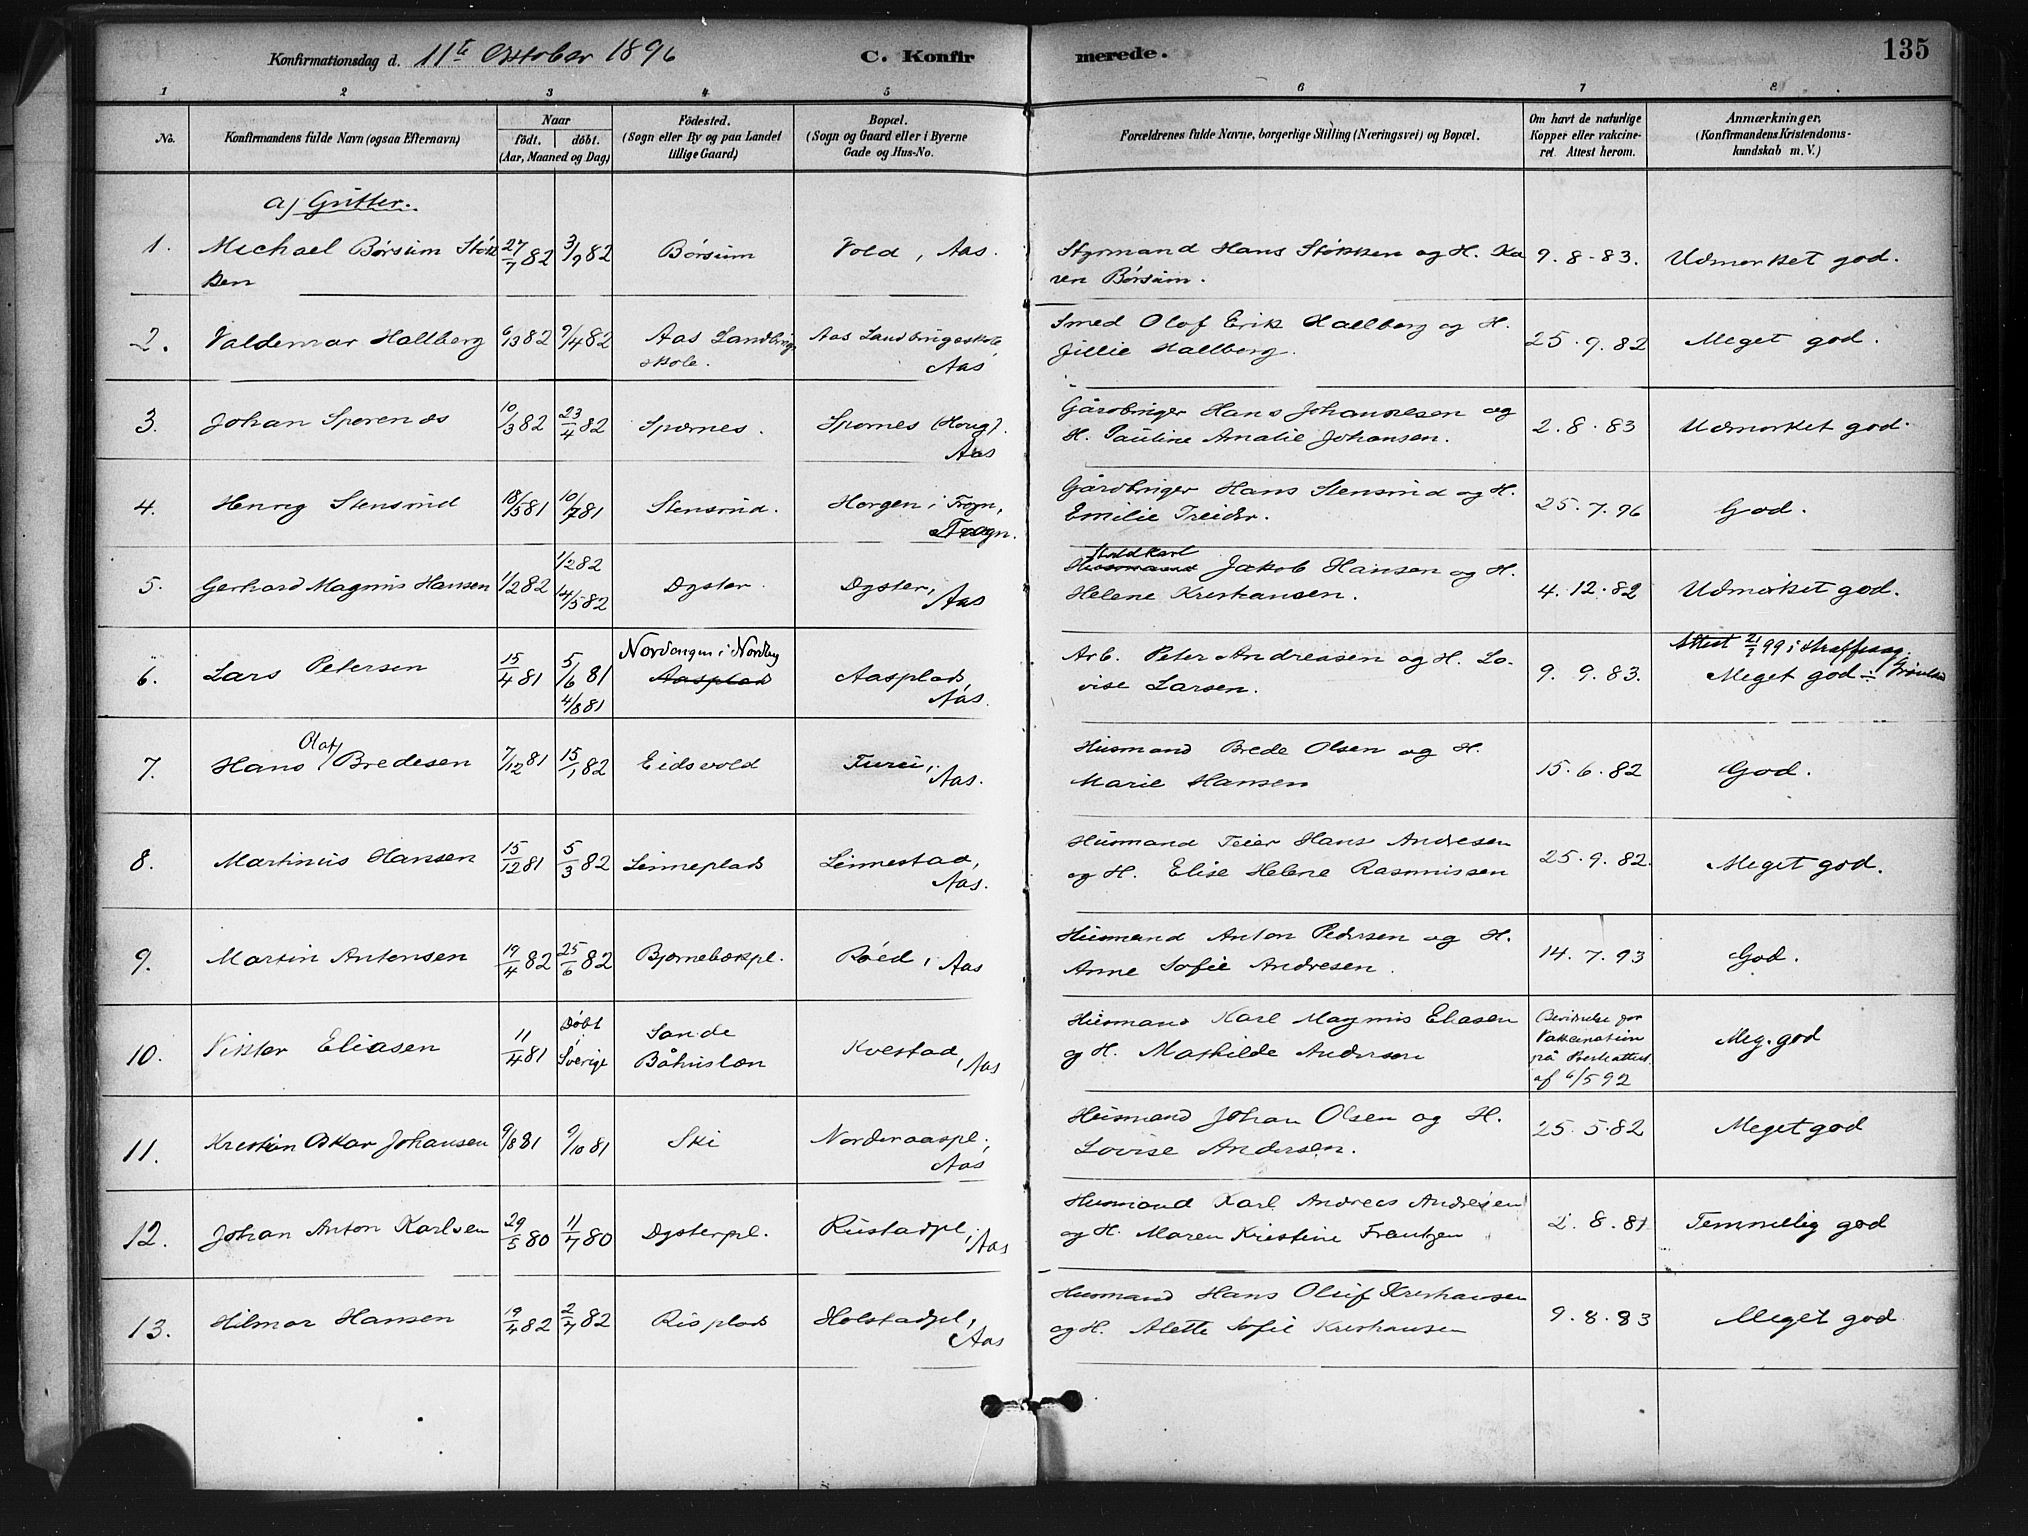 Konfirmationsdag d. 11te Oktober 1896
C. Konfirmerede.
135
1 2 3 4 5 6 7 8
No.
Konfirmandens fulde Navn (ogsaa Efternavn)
Naar
født. døbt.
(Aar, Maaned og Dag)
Fødested.
(Sogn eller By og paa Landet
tillige Gaard)
Bopæl.
(Sogn og Gaard eller i Byerne
Gade og Hus-No.
Forældrenes fulde Navne, borgerlige Stilling (Næringsvei) og Bopæl.
Om havt de naturlige
Kopper eller vakcineret. Attest herom.
Anmærkninger,
(Konfirmandens Kristendoms-
kundskab m. V.)
a) Gutter.
1. Michael Børsum Støk 27/7 82 3/9 82 Børsum Vold, Aas. Styrmand Hans Støkken og H. Ka 9.8.83. Udmerket god.
ken ren Børsum.
2. Valdemar Hallberg 6/3 82 9/4 82 Aas Landbrugs Aas Landbrugsskole, Smed Olof Erik Hallberg og H. 25.9.82 Meget god.
skole. Aas Jillie Hallberg.
3. Johan Sperenæs 10/3 82 23/4 82 Spærnes. Spornes (Houg). Gårdbruger Hans Johannesen og 2.8.83 Udmerket god.
Aas H. Pauline Amalie Johansen.
4. Henrig Stensrud 18/5 81 10/7 81 Stensrud. Horgen i Frogn, Gårdbruger Hans Stensrud og H. 25.7.96 God.
Frogn. Emilie Treider.
5. Gerhard Magnus Hansen 1/2 82 1/2 82 14/5 82 Dyster. Dyster, Aas Husmand Jakob Hansen og H. 4.12.82 Udmerket god.
Helene Kristiansen.
6. Lars Petersen 15/4 81 5/6 81 4/8 81 Nordengen i Nordby Aasplads Aasplads, Aas. Arb. Peter Andreasen og H. Lo- 9.9.83. Attest 21/7 99 i Straffesag.
vise Larsen. Meget god
7. Hans Olaf Bredesen 7/12 81 15/1 82 Eidsvold Furu, Aas. Husmand Brede Olsen og H. 15.6.82 God.
Marie Hansen
8. Martinus Hansen 15/12 81 5/3 82 Linneplads Linnestad, Aas. Husmand Feier Hans Andresen 25.9.82. Meget god.
og H. Elise Helene Rasmussen
9. Martin Antonsen 19/4 82 25/6 82 Bjørnebekpl. Røed, Aas Husmand Anton Pedersen og H. 14.7.93 God.
Anne Sofie Andresen.
10. Viktor Eliasen 11/4 81 Døbt i Sverige Sande Båhuslen Kvestad, Aas Husmand Karl Magnus Eliasen Bevidnelse for Meg. god
og H. Mathilde Andersen Vakcination
på Presteattest
af 6/5 92
11. Kristian Oskar Johansen 9/8 81 9/10 81 Ski Norderaaspl., Aas Husmand Johan Olsen og H. 25.5.82 Meget god
Lovise Andersen.
12. Johan Anton Karlsen 29/5 80 11/7 80 Dysterpl. Rustadpl., Aas Husmand Karl Andreas Andresen 2.8.81 Temmelig god
og H. Maren Kristine Frantzen
13. Hilmar Hansen 19/4 82 2/7 82 Risplads Holstadpl, Aas Husmand Hans Oluf Kristiansen 9.8.83 Meget god
og H. Alette Sofie Kristiansen